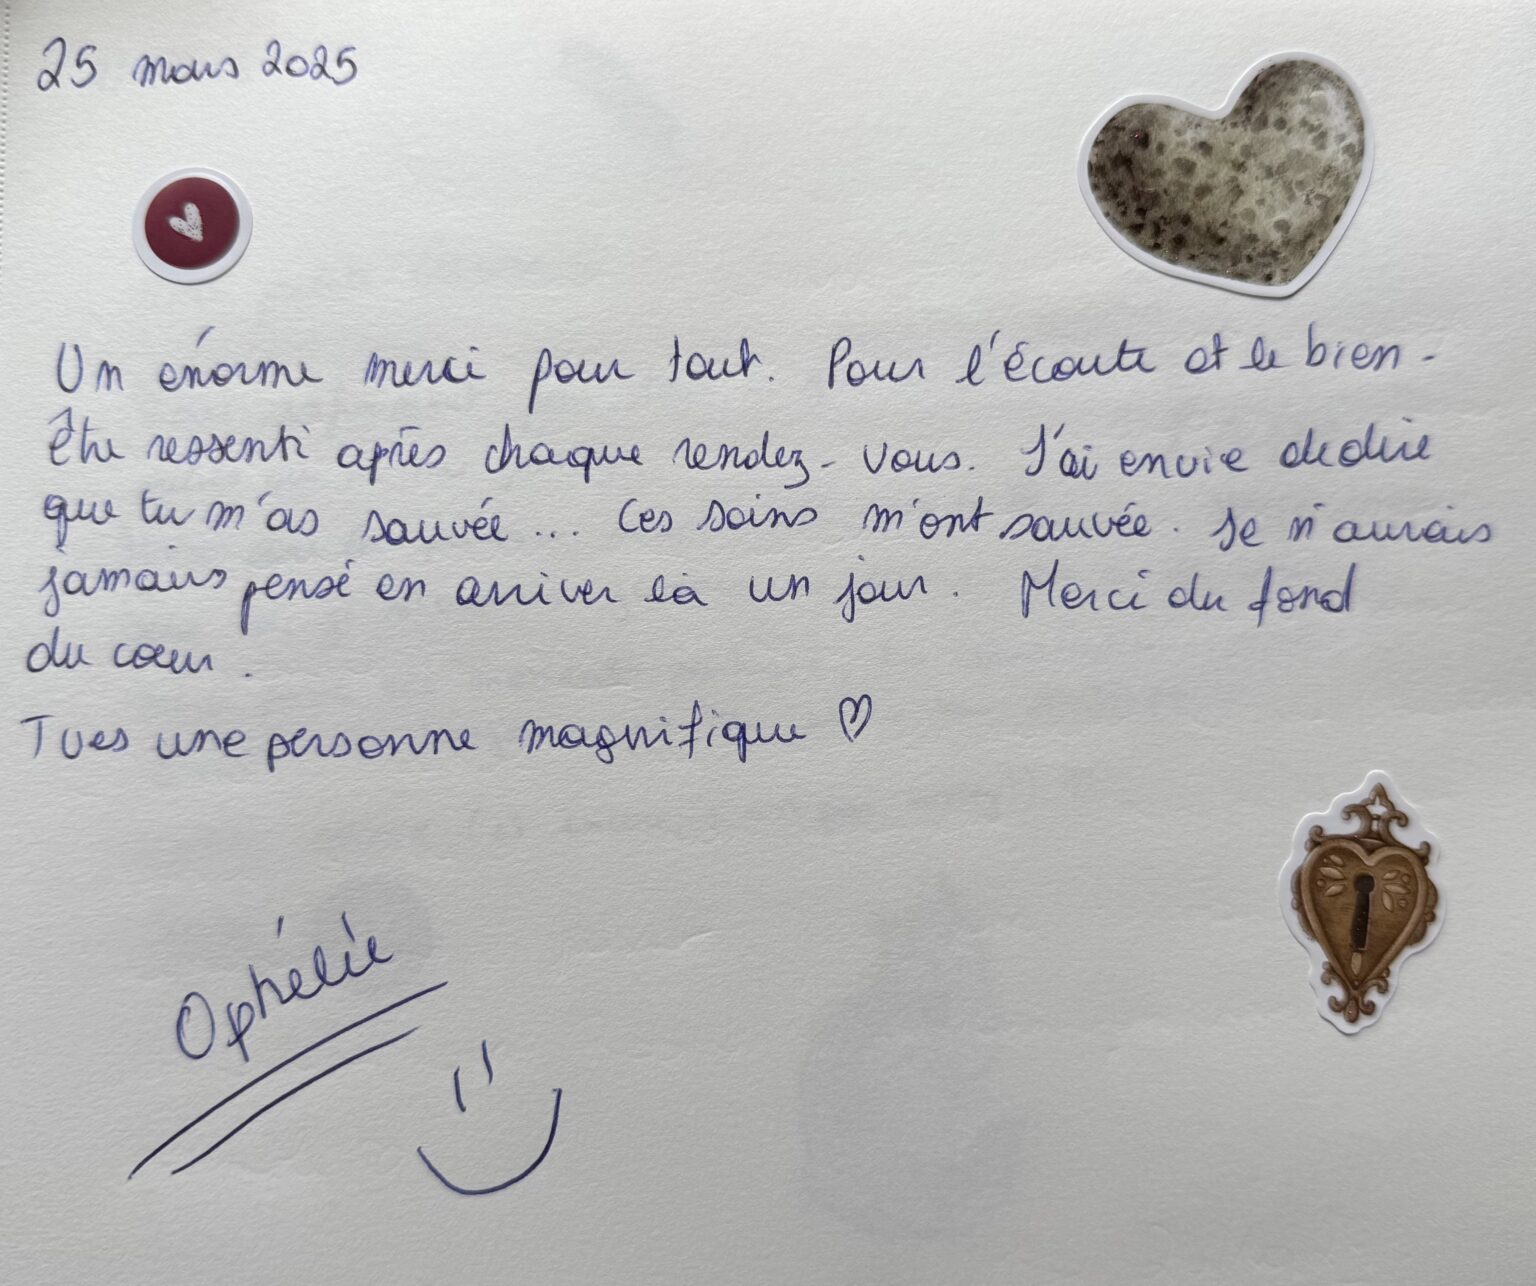 25 mars 2025
Un énorme merci pour tout. Pour l'écoute et le bien-
être ressenti après chaque rendez-vous. J'ai envie de dire
que tu m'as sauvée... Ces soins m'ont sauvée. Je n'aurais
jamais pensé en arriver là un jour. Merci du fond
du cœur.
Tu es une personne magnifique ♡
Ophélie